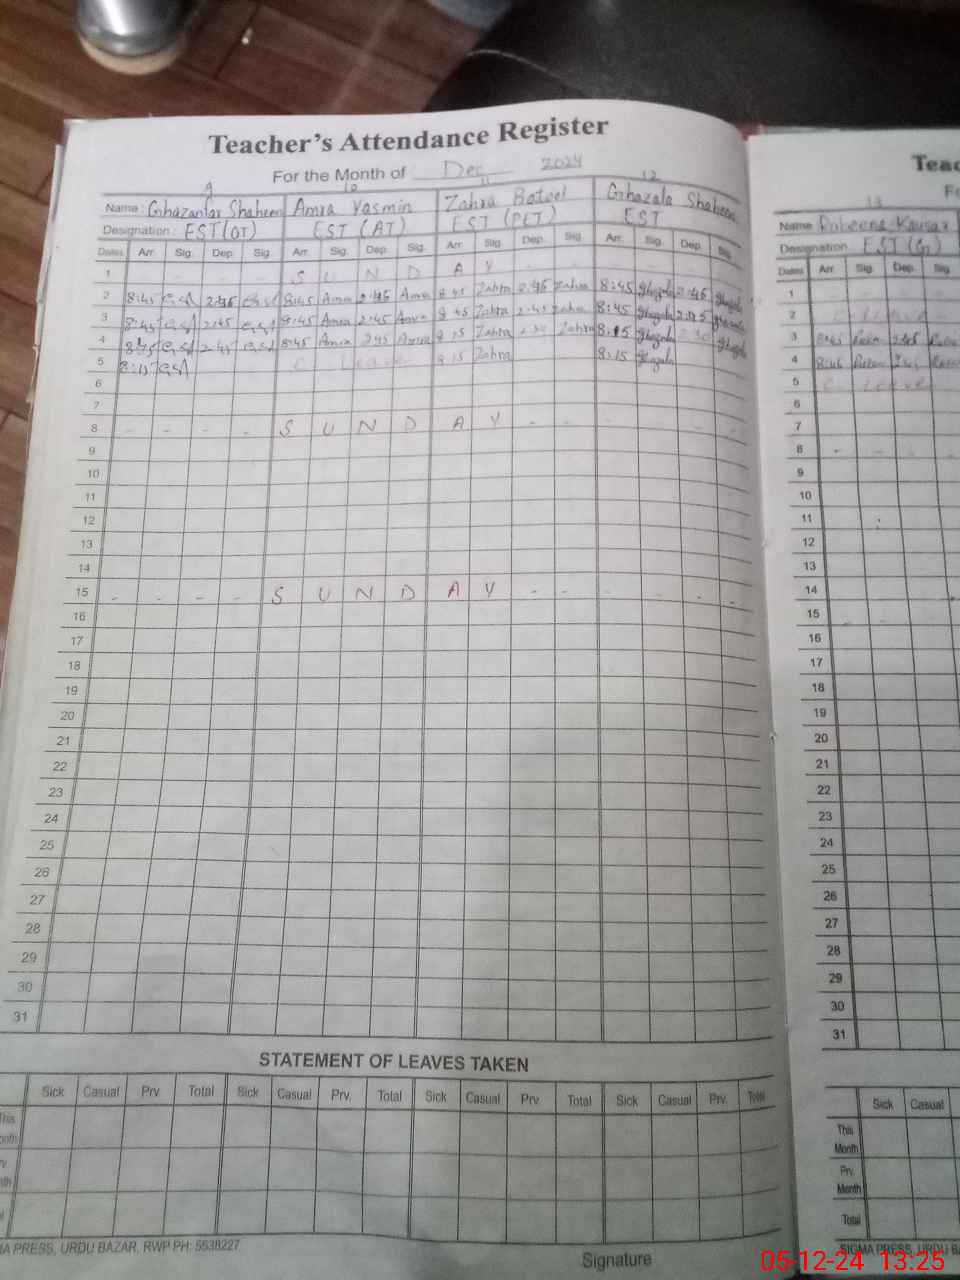 Teacher's Attendance Register
For the Month of Dec 2024
9 10 11 12
Name : Ghazanfar Shaheen Amra Yasmin Zahra Batool Ghazala Shaheen
Designation : EST(OT) EST (AT) EST (PET) EST
Dates Arr. Sig. Dep. Sig. Arr. Sig. Dep. Sig. Arr. Sig. Dep. Sig. Arr. Sig. Dep. Sig.
1 S U N D A Y
2 8:45 2:45 8:45 Amra 2:45 Amra 8:45 Zahra 2:45 Zahra 8:45 ghazala 2:45 ghazala
3 8:45 2:45 8:45 Amra 2:45 Amra 8 45 Zahra 2:45 Zahra 8:45 ghazala ghazala
4 2:45 8:45 Amra 2:45 Amra Zahra Zahra ghazala ghazala
5 8:15 C Leave 8 15 Zahra 8:15 ghazala
6
7
8 - - - - S U N D A Y - - - - - -
9
10
11
12
13
14
15 - - - - S U N D A Y - - - - - -
16
17
18
19
20
21
22
23
24
25
26
27
28
29
30
31
STATEMENT OF LEAVES TAKEN
Sick Casual Prv. Total Sick Casual Prv. Total Sick Casual Prv. Total Sick Casual Prv. Total
This
Month
PRESS, URDU BAZAR, RWP PH: 5538227
Signature
Teac
13
Name : Rubeena Kausar
Designation : EST (G)
Dates Arr. Sig. Dep. Sig.
1
2 Leave
3 8:45 2:45
4 8:45 2:45
5 C Leave
6
7
8
9
10
11
12
13
14
15
16
17
18
19
20
21
22
23
24
25
26
27
28
29
30
31
Sick Casual
This
Month
Prv.
Month
Total
SIGMA PRESS, URDU BA
05-12-24 13:25